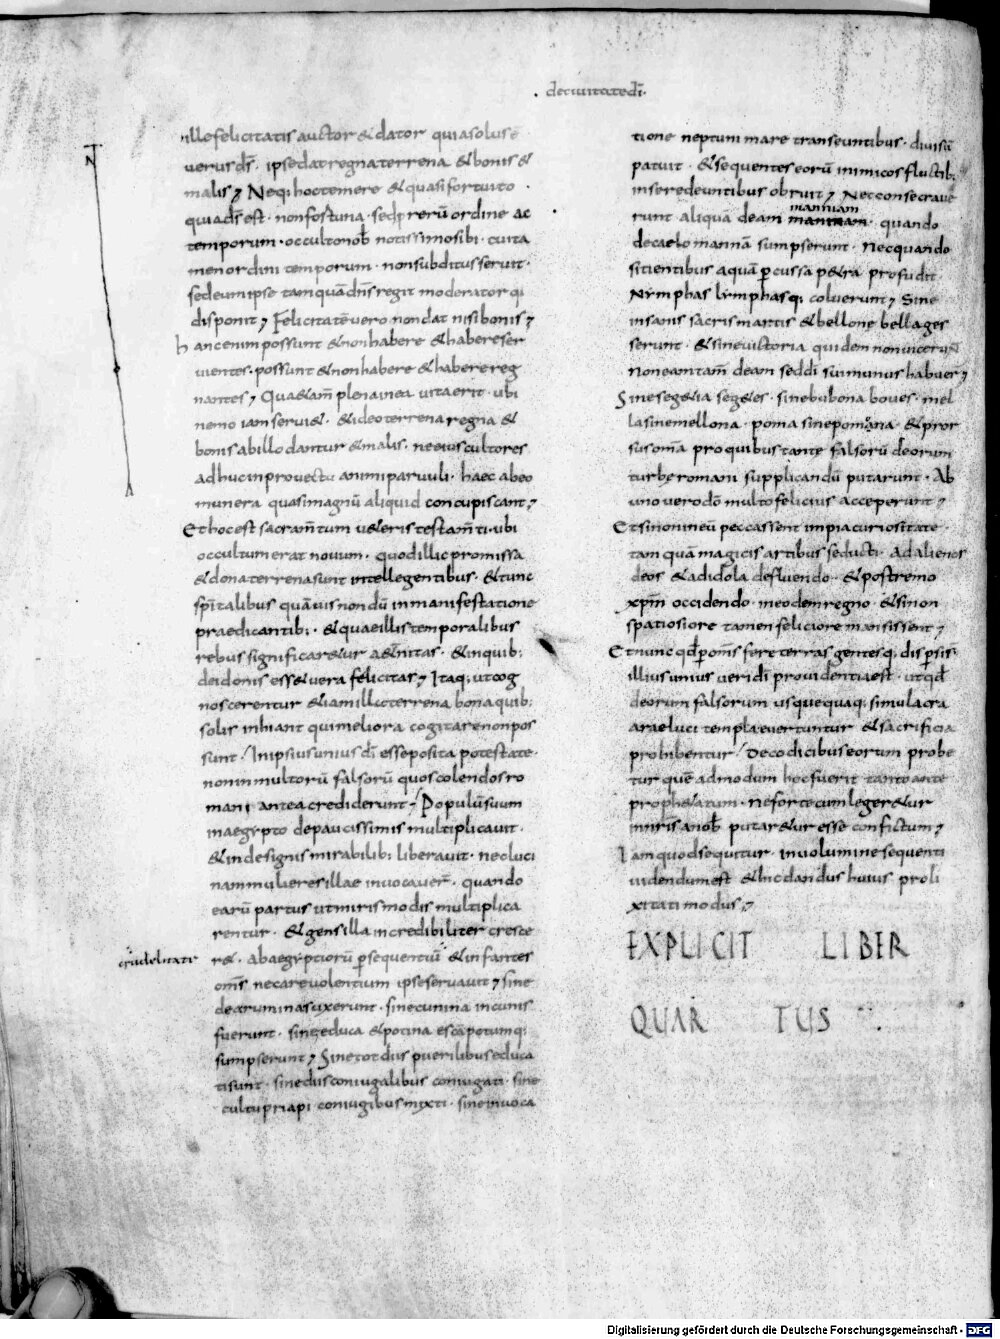 de civitate dī.
ille felicitatis auctor & dator quia solus ē
verus d̄s. ipse dat regna terrena & bonis &
malis; Neq; hoc temere & quasi fortuito.
quia d̄s est. non fortuna. sed p rerū ordine ac
temporum. occulto nob̄ notissimo sibi. cui ta
men ordini temporum. non subditus servit.
sed eum ipse tamquā dn̄s regit moderatorq;
disponit; Felicitatē vero non dat nisi bonis;
hanc enim possunt & non habere & habere ser
vientes. possunt & non habere & habere reg
nantes; Quae tam̄ plena in ea vita erit. ubi
nemo iam servi&. & ideo terrena regna &
bonis ab illo dantur & malis. ne eius cultores
adhuc in provectu animi parvuli. haec ab eo
munera quasi magnū aliquid concupiscant;
Et hoc est sacram̄tum v&eris testam̄ti. ubi
occultum erat novum. quod illic promissa
& dona terrena sunt intellegentibus. & tunc
spīitalibus quāvis nondū in manifestatione
praedicantib;. & quae illis temporalibus
rebus significar&ur a&nitas. & in quib;
dei donis ess& vera felicitas; Itaq; ut cog
noscerentur & iam illic terrena bona quib;
solis inhiant qui meliora cogitare non pos
sunt. In ipsius unius dī esse posita potestate.
non in multorū falsorū quos colendos ro
mani antea crediderunt; Populū suum
in aegypto de paucissimis multiplicavit.
& inde signis mirabilib; liberavit. nec luci
nam mulieres illae invocaver̄. quando
earū partus ut miris modis multiplica
rentur. & gens illa incredibiliter cresce
crudelitate
r&. ab aegyptiorū psequentiū & infantes
om̄s necare volentium ipse servavit; sine
dea rumina suxerunt. sine cunina in cunis
fuerunt. sine educa & potina escā potumq;
sumpserunt; Sine tot diis puerilibus educa
ti sunt. sine diis coniugalibus coniugati. sine
cultu priapi coniugibus mixti. sine invoca
tione neptuni mare transeuntibus. divisū
patuit. & sequentes eorū inimicos fluctib;
in se redeuntibus obruit; Nec consecrave
manniam
runt aliquā deam manniam. quando
de caelo mannā sumpserunt. nec quando
sitientibus aquā pcussa p&ra profudit
Nymphas lymphasq; coluerunt; Sine
insanis sacris martis & bellone bella ges
serunt. & sine victoria quidem non vicerunt
Non eam tam̄ deam sed dī sui munus habuer̄;
Sine seg&ia seg&es. sine bubona boves. mel
la sine mellona. poma sine pomona. & pror
sus om̄a pro quibus tantę falsorū deorum
turbę romani supplicandū putarunt. Ab
uno vero dō multo felicius acceperunt;
Et si non in eū peccassent impia curiositate
tamquā magicis artibus seducti. ad alienos
deos & ad idola defluendo. & postremo
xpm̄ occidendo. in eodem regno. & si non
spatiosiore tamen feliciore mansissent;
Et nunc qd̄ p om̄s fere terras gentesq; dispsi s.
illius unius veri dī providentia est. ut qd̄
deorum falsorum usquequaq; simulacra
arae luci templa evertuntur & sacrificia
prohibentur. De codicibus eorum probe
tur quē admodum hoc fuerit tanto ante
proph&atum. Ne forte cum leger&ur
in nr̄is a nob̄ putar&ur esse confictum;
Iam quod sequitur. in volumine sequenti
videndum est & hic dandus huius proli
xitati modus;
EXPLICIT LIBER
QUAR TUS